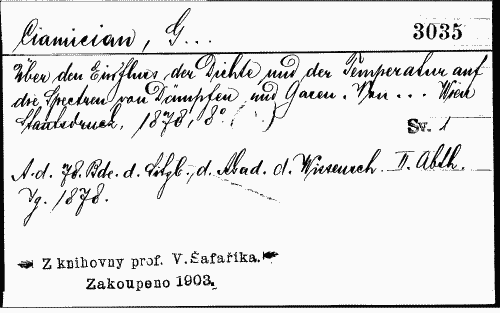 Ciamician, G...
3035
Über den Einfluss der Dichte und der Temperatur auf
die Spectren von Dämpfen und Gasen. Von ... Wien
Staatsdruck. 1878, 8°.
Sv. 1
A. d. 78. Bde. d. Sitzb. d. Akad. d. Wissensch. II. Abth.
Jg. 1878.
Z knihovny prof. V. Šafaříka.
Zakoupeno 1903.